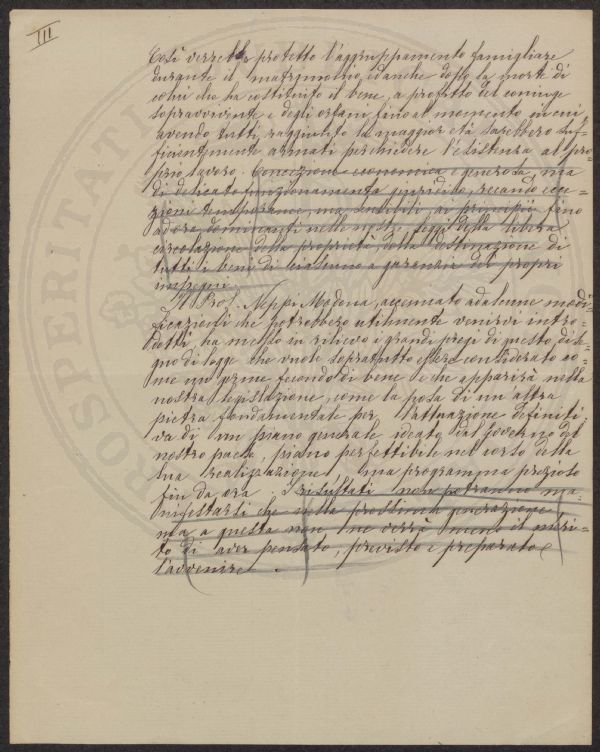 III
Così verrebbe protetto l'aggruppamento famigliare
durante il matrimonio, ed anche dopo la morte di
colui che ha costituito il bene, a profitto del coniuge
sopravvivente e degli orfani fino al momento in cui
avendo tutti raggiunto la maggior età sarebbero suf-
ficientemente armati per chiedere l'esistenza al pro-
prio lavoro. Concezione economica e generosa, ma
di delicato funzionamento giuridico, recando ecce-
zioni temporanee, ma sensibili ai principii fino
ad ora dominanti nelle nostre leggi della libera
circolazione della proprietà, della destinazione di
tutti i beni di ciascuno a garanzia dei propri
impegni.
Il Prof. Neppi Modona, accennato ad alcune modi-
ficazioni che potrebbero utilmente venirvi intro-
dotti, ha messo in rilievo i grandi pregi di questo dise-
gno di legge che vuole soprattutto essere considerato co-
me un germe fecondo di bene e che apparirà nella
nostra legislazione, come la posa di un altra
pietra fondamentale per l'attuazione definiti-
va di un piano generale ideato dal Governo del
nostro paese, piano perfettibile nel corso della
sua realizzazione, ma programma prezioso
fin da ora. I risultati non potranno ma-
nifestarsi che nella prossima generazione
ma a questa non ne verrà meno il meri-
to di aver pensato, previsto e preparato
l'avvenire.
PROSPERITATI